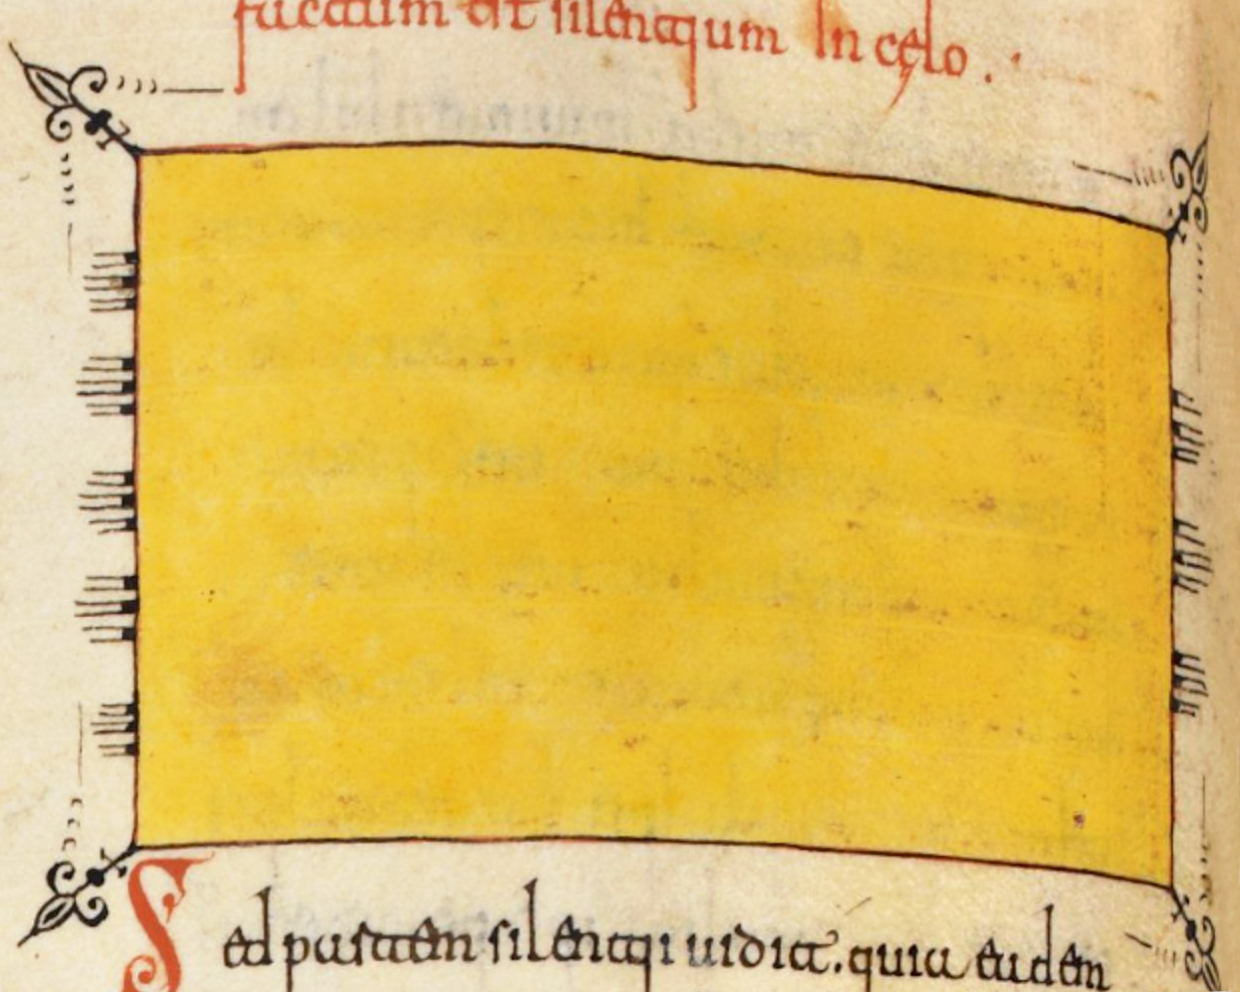 factum est silentium In cęlo.
Sed pastem silentii uidit. quia eadem